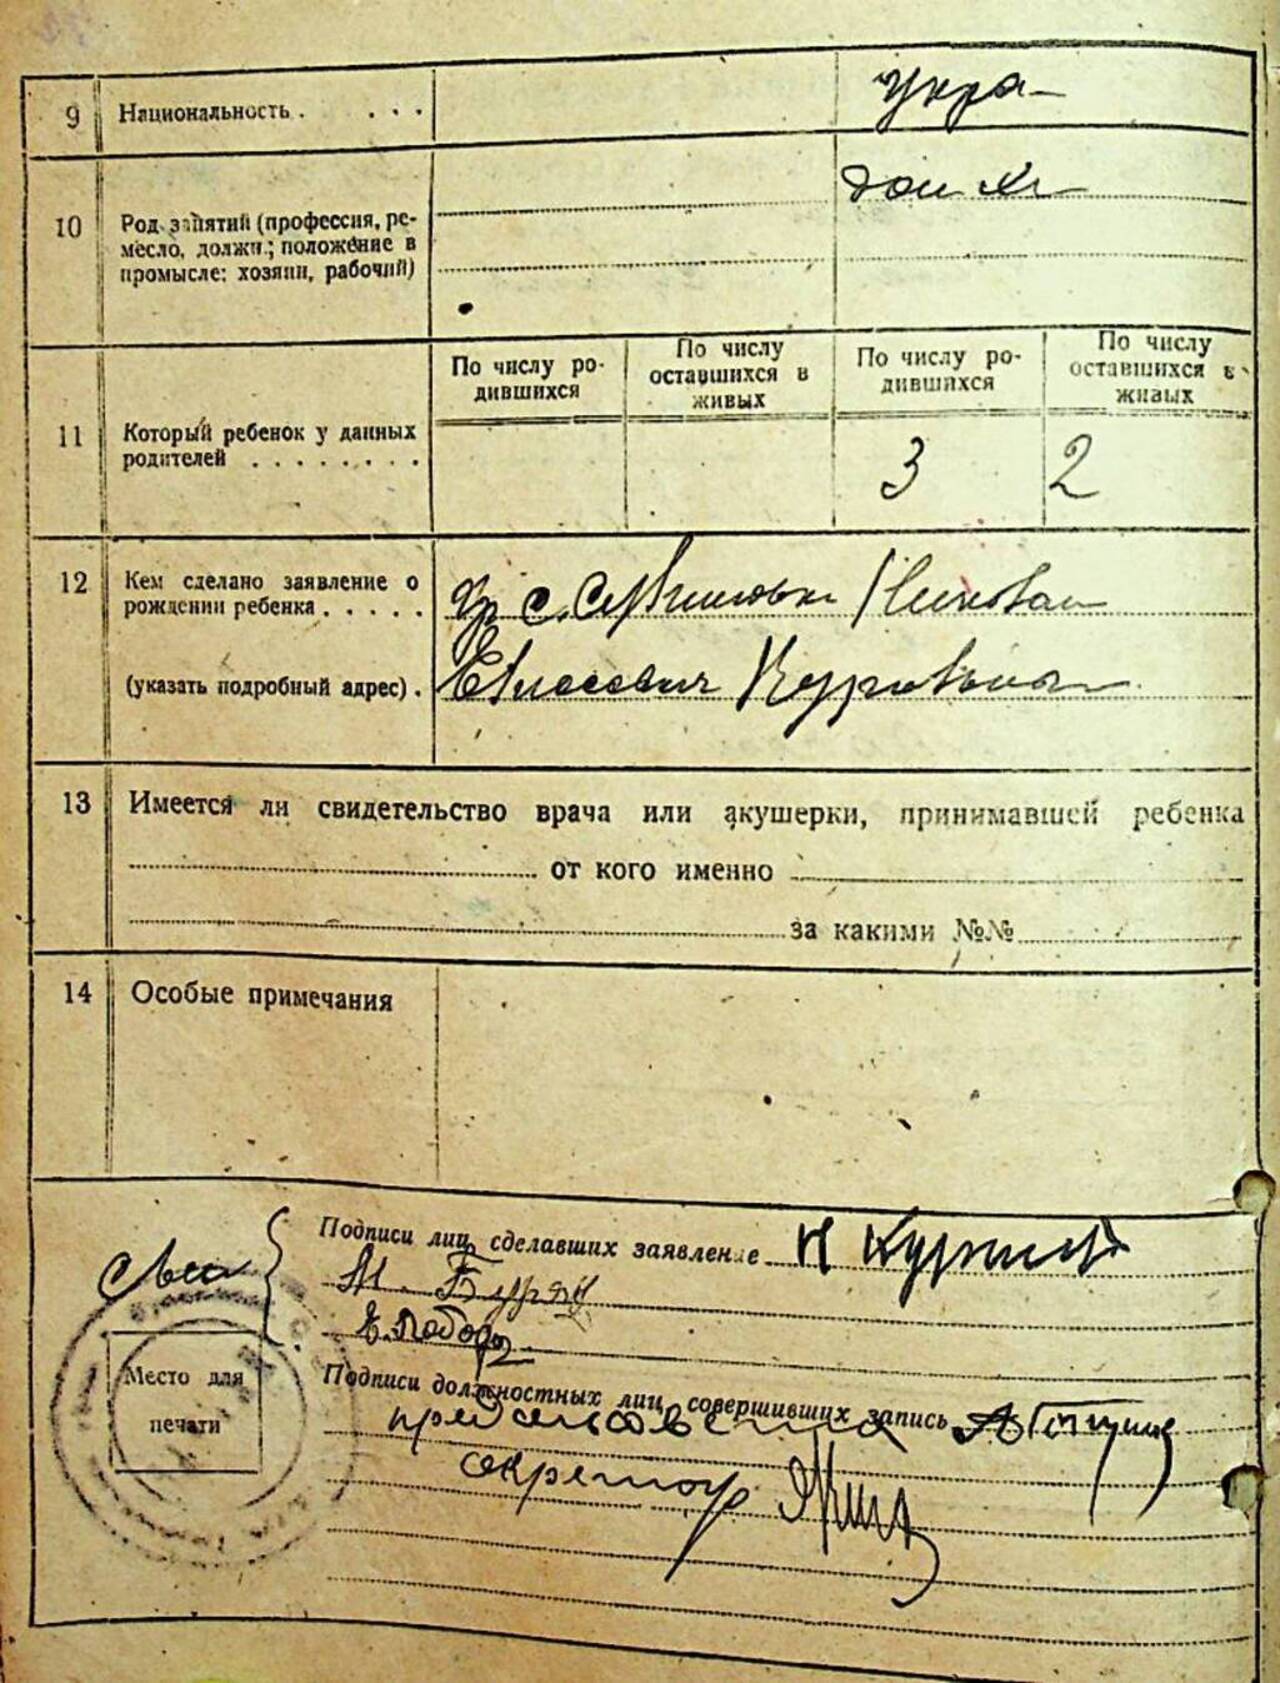 9 Национальность . . . . укра-
10 Род занятий (профессия, ре-
месло, должн.; положение в
промысле: хозяин, рабочий)
дом хг
11 Который ребенок у данных
родителей . . . . . . . .
По числу ро-
дившихся
По числу
оставшихся в
живых
По числу ро-
дившихся
По числу
оставшихся в
живых
3 2
12 Кем сделано заявление о
рождении ребенка . . . . .
(указать подробный адрес) .
гр с.
Елисеевич
13 Имеется ли свидетельство врача или акушерки, принимавшей ребенка
от кого именно
за какими №№
14 Особые примечания
Подписи лиц, сделавших заявление Н
М. Буряк
Е.
Место для
печати
Подписи должностных лиц, совершивших запись
секретар